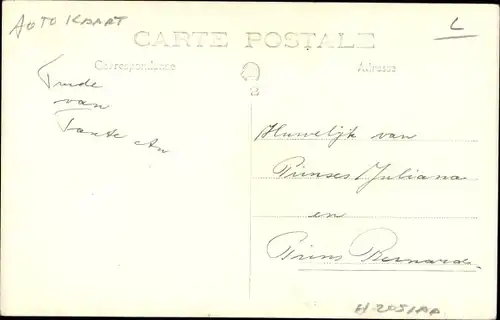 FOTO KAART
L
CARTE POSTALE
Correspondance
Adresse
B
Trude
van
Tante An
Huwelijk van
Prinses Juliana
en
Prins Bernard